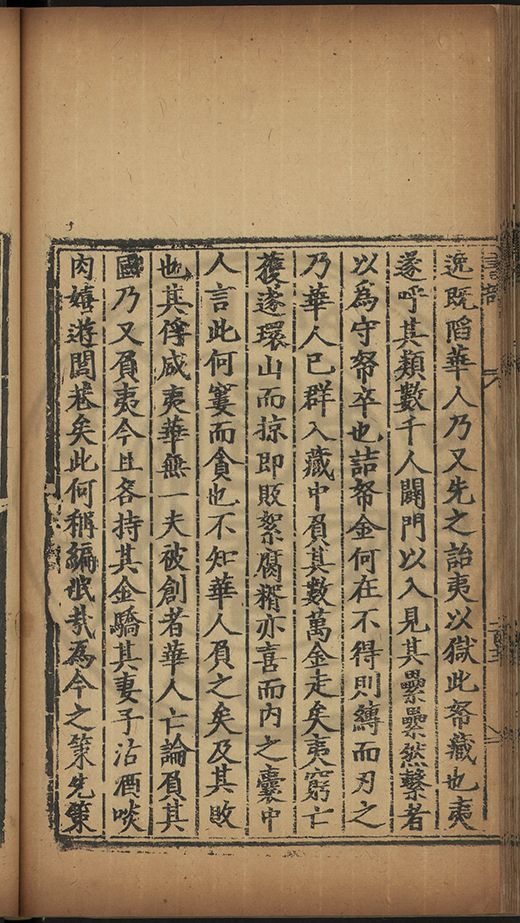 逸既䧟華人乃又先之詒夷以獄此帑藏也夷
遂呼其類數千人闢門以入見其纍纍然繫者
以為守帑卒也詰帑金何在不得則縛而刃之
乃華人已群入藏中負其數萬金走矣夷窮亡
獲遂環山而掠即敗絮腐糈亦喜而內之囊中
人言此何窶而貪也不知華人負之矣及其敗
也其俘咸夷華無一夫被創者華人亡論負其
國乃又負夷今且各持其金驕其妻子沽酒啖
肉嬉遊閭巷矣此何稱編氓哉為今之策先策